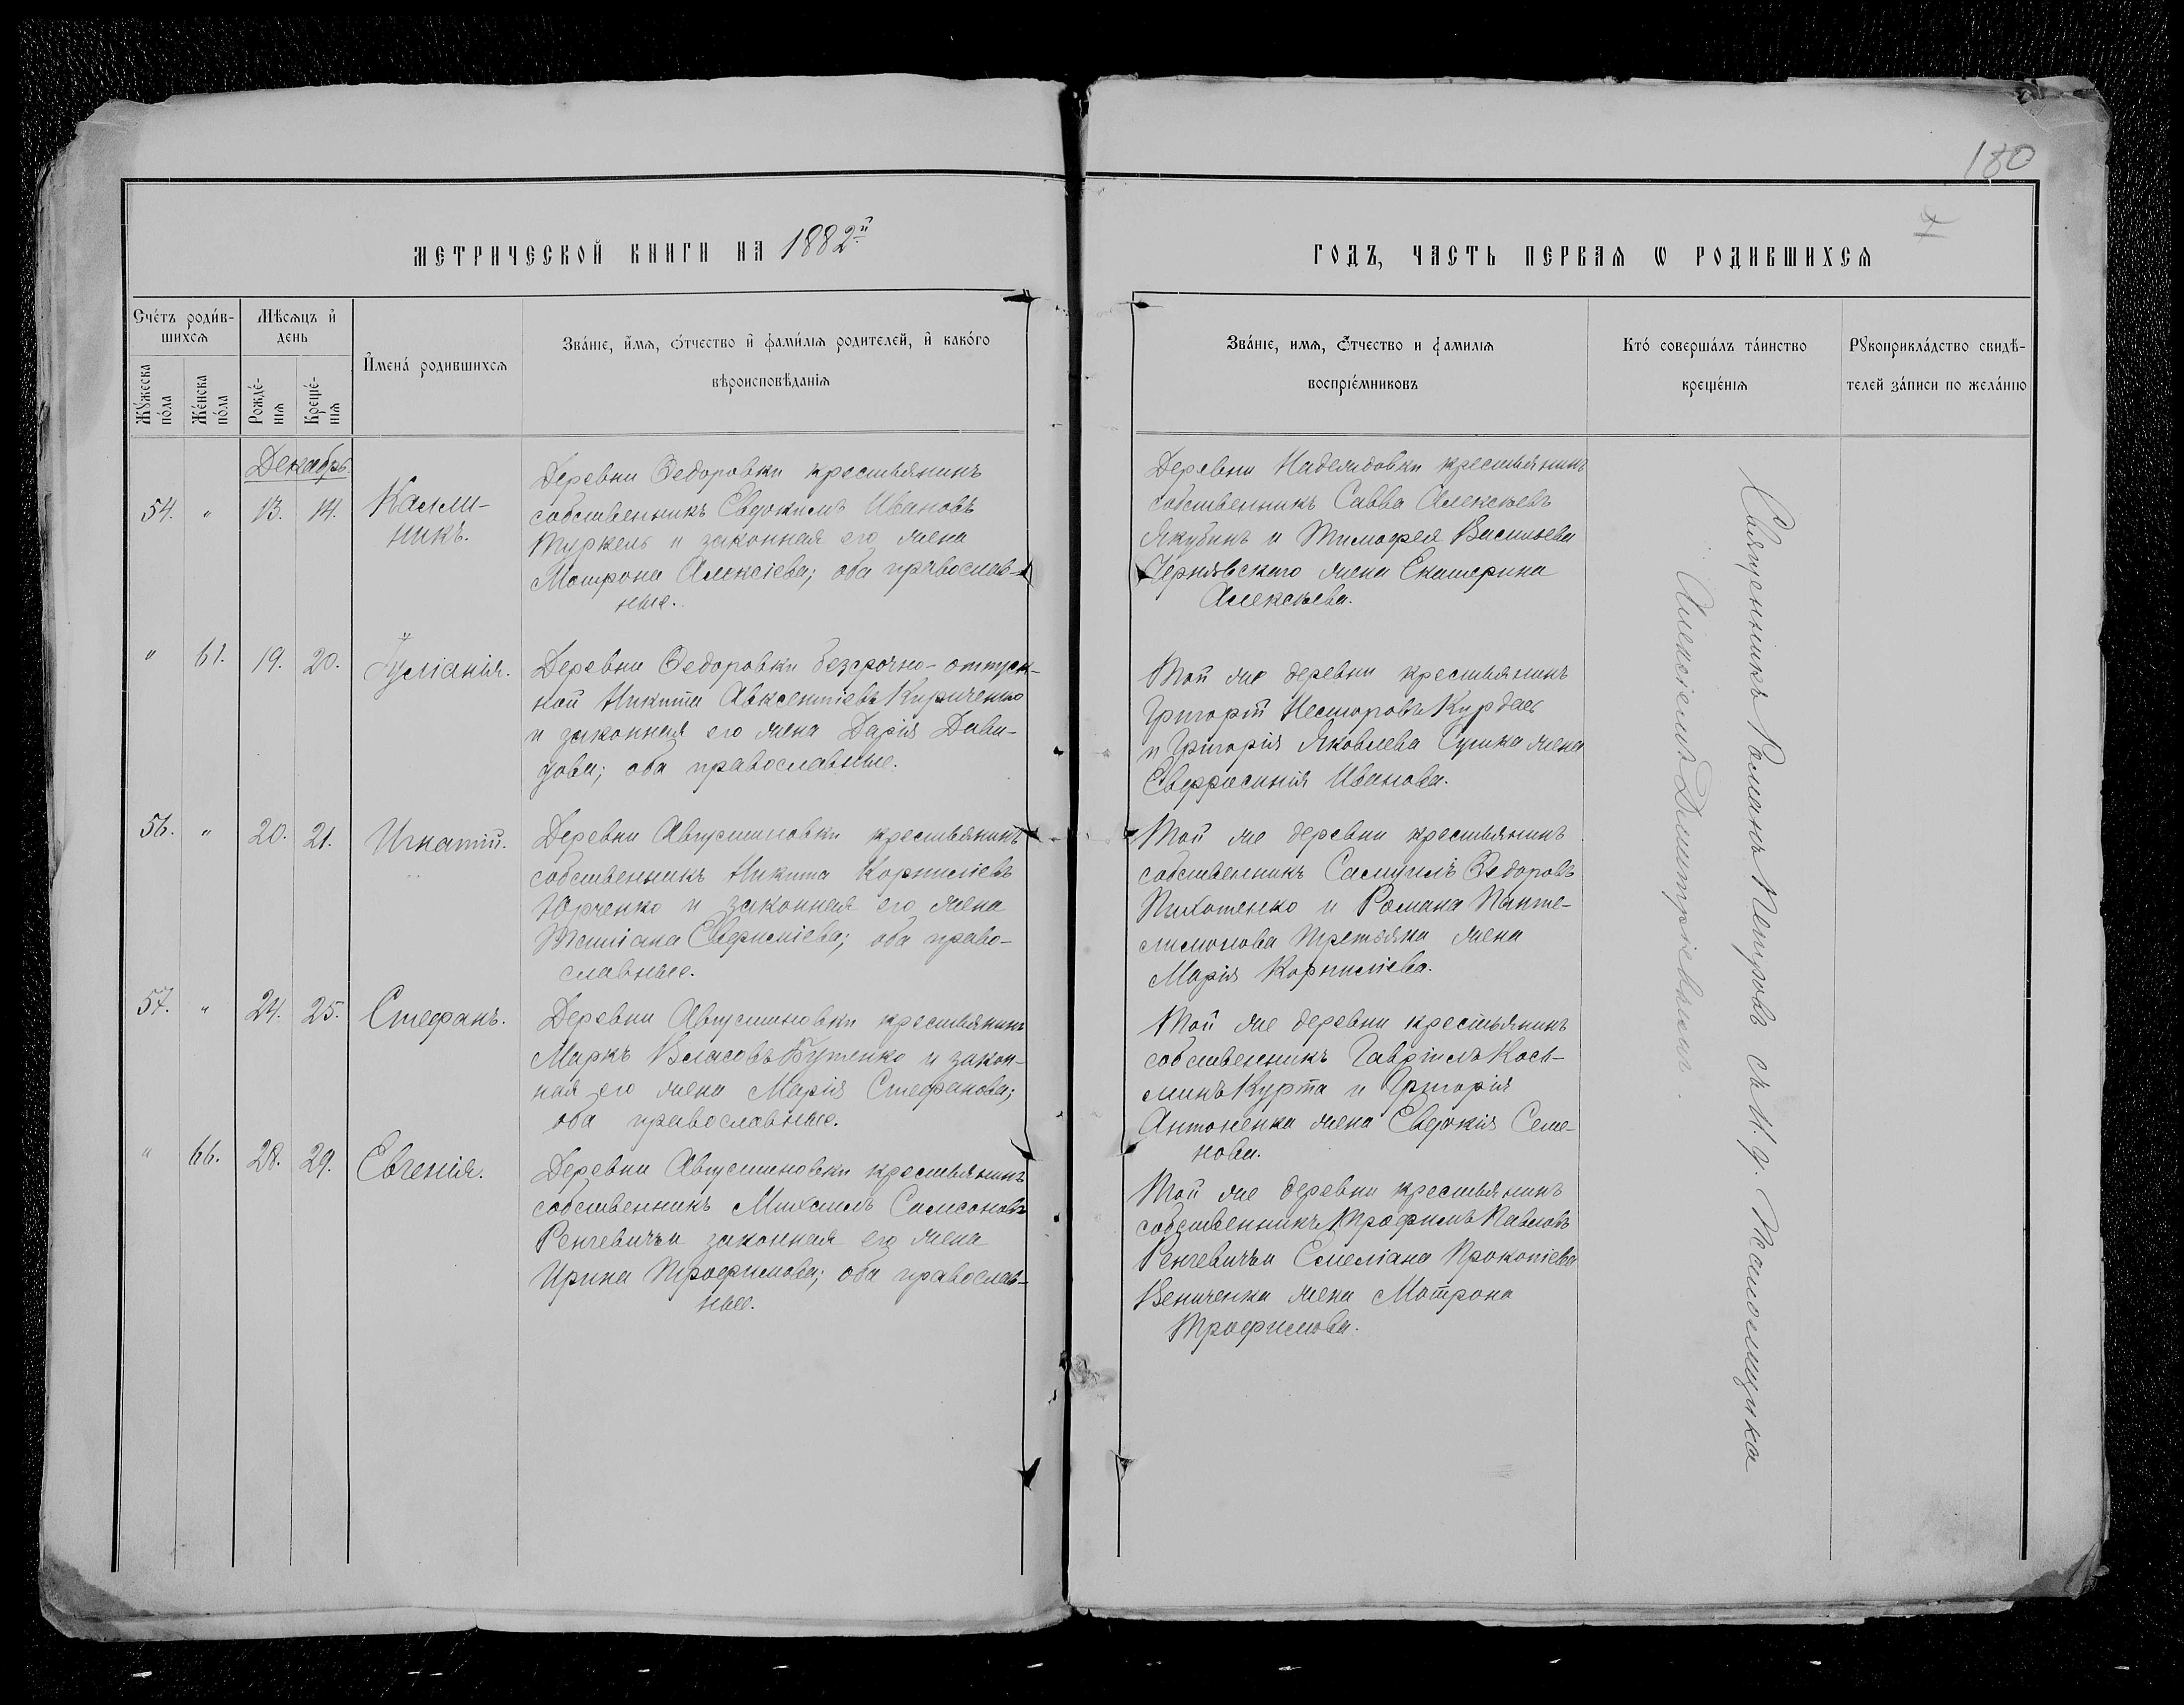 180
4
МЕТРИЧЕСКОЙ КНИГИ НА 1882й
ГОДЪ, ЧАСТЬ ПЕРВАЯ Ѡ РОДИВШИХСЯ
Сче́тъ роди́в-
шихсѧ
Мѣсѧцъ и҆
день
И҆мена́ родившихсѧ
Зва́нїе, и҆́мѧ, ѻ҆́тчество и҆ фами́лїѧ родителей, и҆ како́го
вѣроисповѣ́данїѧ
Мꙋ́жеска
по́ла
Же́нска
по́ла
Рожде́-
нїѧ
Креще́-
нїѧ
Зва́нїе, имѧ, ѻ҆́тчество и фамилїѧ
воспрїе́мниковъ
Кто́ соверша́лъ та́инство
креще́нїѧ
Рꙋкоприкла́дство свидѣ́-
телей за́писи по жела́нїю
Декабрь.
54. " 13. 14. Калли-
никъ.
Деревни Ѳедоровки крестьянинъ
собственникъ Евдокимъ Ивановъ
Туркель и законная его жена
Матрона Алексіева; оба православ-
ные.
Деревни Надеждовки крестьянинъ
собственникъ Савва Алексѣевъ
Якубинъ и Тимофея Васильева
Чернявскаго жена Екатерина
Алексѣева.
" 61. 19. 20. Іуліанія.
Деревни Ѳедоровки безсрочно-отпуск-
ной Никита Авксентіевъ Кириченко
и законная его жена Дарія Дави-
дова; оба православные.
Той же деревни крестьянинъ
Григорій Несторовъ Курдасъ
и Григорія Яковлева Сушка жена
Евфросинія Иванова.
56. " 20. 21. Игнатій.
Деревни Августиновки крестьянинъ
собственникъ Никита Корниліевъ
Юрченко и законная его жена
Татіана Ермиліева; оба право-
славные.
Той же деревни крестьянинъ
собственникъ Самуилъ Ѳедоровъ
Пихотенко и Романа Панте-
лимонова Третьяка жена
Марія Корниліева.
57. " 24. 25. Стефанъ.
Деревни Августиновки крестьянинъ
Маркъ Власовъ Бутенко и закон-
ная его жена Марія Стефанова;
оба православные.
Той же деревни крестьянинъ
собственникъ Гавріилъ Кось-
минъ Курта и Григорія
Антоненка жена Евдокія Семе-
нова.
" 66. 28. 29. Евгенія.
Деревни Августиновки крестьянинъ
собственникъ Михаилъ Самсоновъ
Ренгевичъ и законная его жена
Ирина Трофимова; оба православ-
ные.
Той же деревни крестьянинъ
собственникъ Трофимъ Павловъ
Ренгевичъ и Емеліана Прокопіева
Величенка жена Матрона
Трофимова.
Священникъ Романъ Петровъ съ И. д. Псаломщика
Алексіемъ Димитріевымъ.